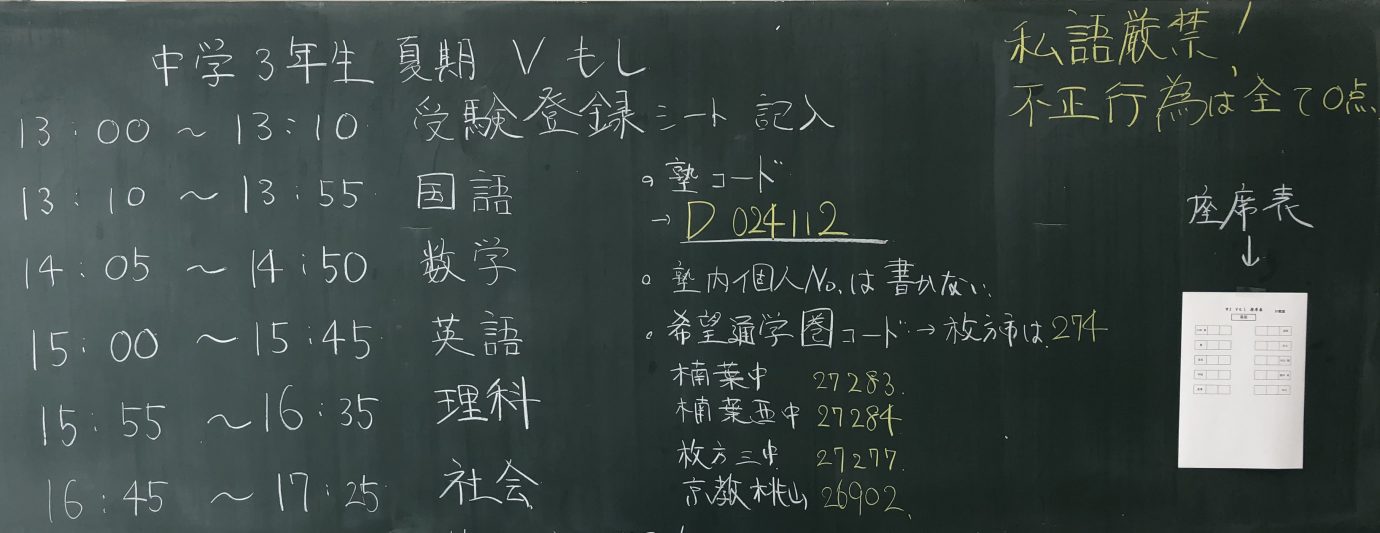 中学3年生 夏期 Vもし
13:00 ~ 13:10 受験登録シート記入
13:10 ~ 13:55 国語
14:05 ~ 14:50 数学
15:00 ~ 15:45 英語
15:55 ~ 16:35 理科
16:45 ~ 17:25 社会
。塾コード
→ D024112
。塾内個人No.は書かない.
。希望通学圏コード→枚方市は.274
楠葉中 27283.
楠葉西中 27284
枚方三中 27277.
京教桃山 26902.
私語厳禁!
不正行為は全て0点.
座席表
↓